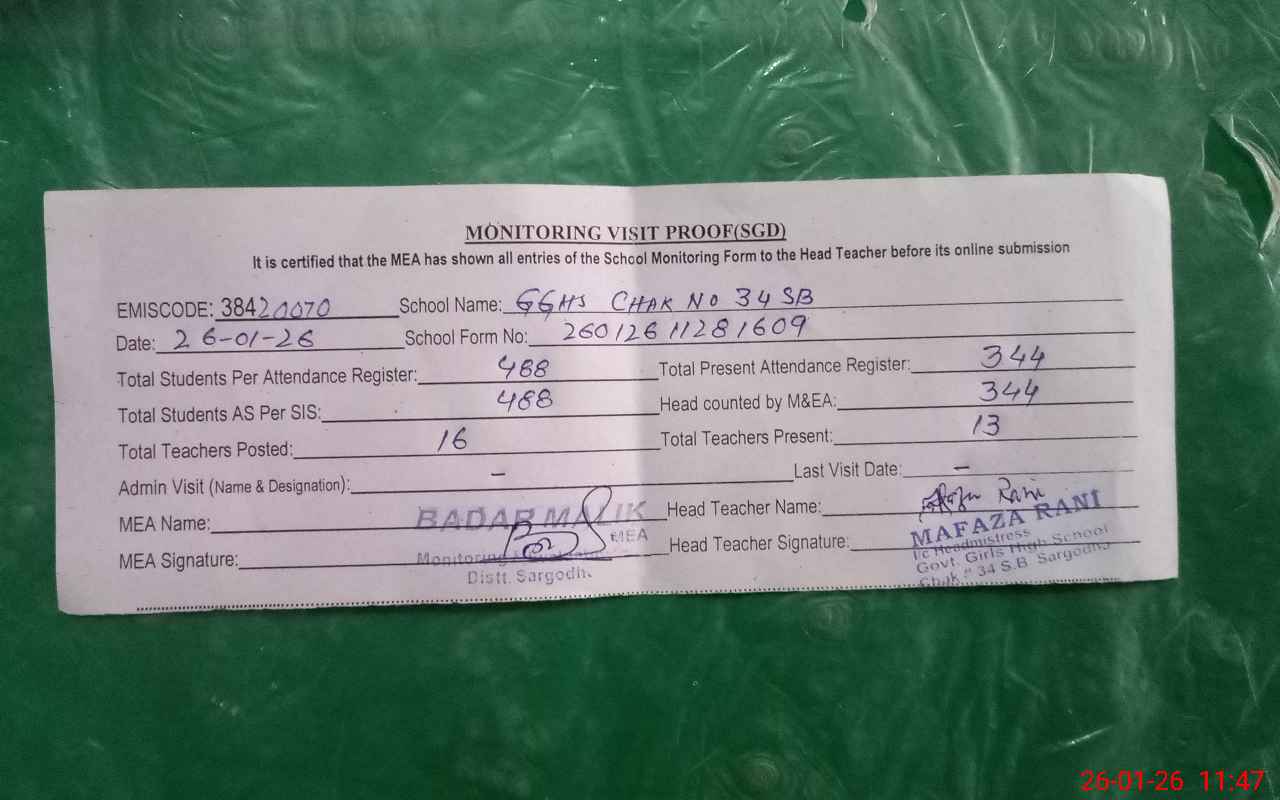 MONITORING VISIT PROOF(SGD)
It is certified that the MEA has shown all entries of the School Monitoring Form to the Head Teacher before its online submission
EMISCODE: 38420070 School Name: GGHS CHAK NO 34 SB
Date: 26-01-26 School Form No: 26012611281609
Total Students Per Attendance Register: 488 Total Present Attendance Register: 344
Total Students AS Per SIS: 488 Head counted by M&EA: 344
Total Teachers Posted: 16 Total Teachers Present: 13
Admin Visit (Name & Designation): – Last Visit Date: –
MEA Name: BADAR MALIK Head Teacher Name: Rani
MEA
MEA Signature: Monitoring Head Teacher Signature: MAFAZA RANI
Distt. Sargodha
I/c Headmistress
Govt. Girls High School
Chak # 34 S.B. Sargodha
26-01-26 11:47